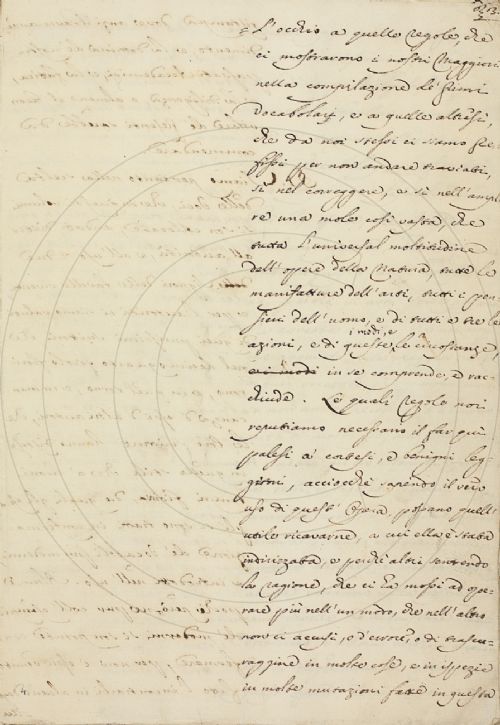 L'occhio a quelle Regole, che
ci mostrarono i nostri Maggiori
nella compilazione de' primi
Vocabolarj, e a quelle altresì,
che da noi stessi ci siamo pre-
fissi per non andare traviati,
sì nel correggere, e sì nell'ampl
re una mole così vasta, che
tutta l'universal moltitudine
dell'opere della Natura, tutte le
manifatture dell'arti, tutti i pen
sieri dell'uomo, e di tutti e tre le
i modi, e
azioni, e di queste le circostanze
e i modi in se comprende, e rac-
chiude. Le quali Regole noi
reputiamo necessario il far quì
palesi a' cortesi, e benigni leg-
gitori, acciocchè sapendo il vero
uso di quest'Opera, possano quell'
utile ricavarne, a cui ella è stata
indirizzata, e perchè altri sentendo
la ragione, che ci ha mossi ad ope-
rare più nell'un modo, che nell'altro
non ci accusi, o d'errore, o di trascu-
raggine in molte cose, e in ispezie
in molte mutazioni fatte in questa